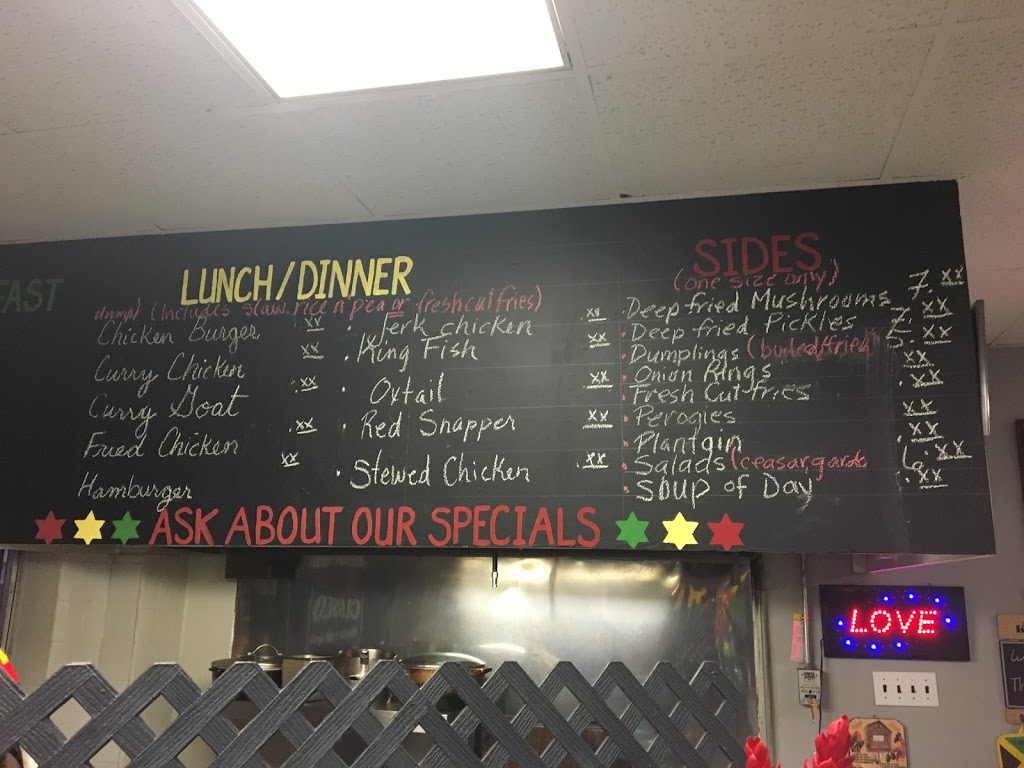 FAST
LUNCH/DINNER
(Includes slaw, rice n pea or fresh cut fries)
Chicken Burger .xx
Curry Chicken .xx
Curry Goat .xx
Fried Chicken .xx
Hamburger .xx
. Jerk chicken .xx
. King Fish .xx
. Oxtail .xx
. Red Snapper .xx
. Stewed Chicken .xx
SIDES
(one size only)
. Deep fried Mushrooms 7.xx
. Deep fried Pickles 7.xx
. Dumplings (boiled/fried) 5.xx
. Onion Rings .xx
. Fresh Cut fries .xx
. Perogies .xx
. Plantgin .xx
. Salads (ceasar, garde 6.xx
. Soup of Day .xx
ASK ABOUT OUR SPECIALS
LOVE